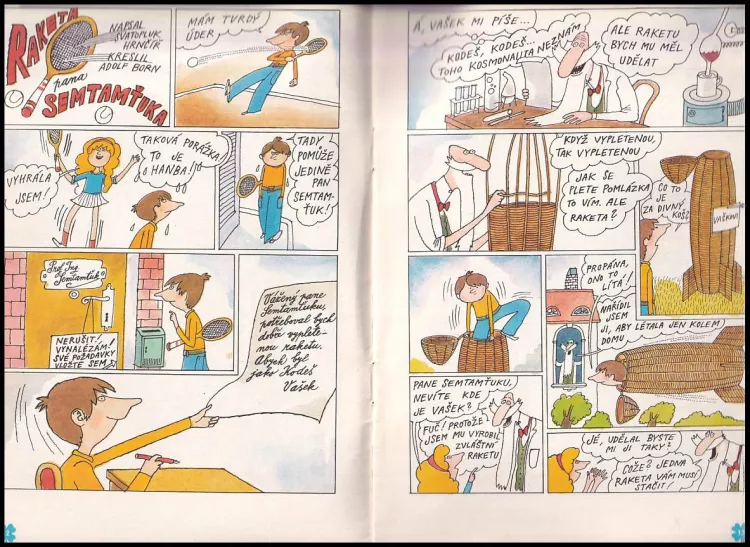 RAKETA
pana
SEMTAMŤUKA
NAPSAL
SVATOPLUK
HRNČÍŘ
KRESLIL
ADOLF BORN
MÁM TVRDÝ
ÚDER
VYHRÁLA
JSEM!
TAKOVÁ PORÁŽKA!
TO JE
HANBA!
TADY
POMŮŽE
JEDINĚ
PAN
SEMTAM-
ŤUK!
Prof. Ing.
Semtamťuk
NERUŠIT!
VYNALÉZÁM!
SVÉ POŽADAVKY
VLOŽTE SEM
Vážený pane
Semtamťuku,
potřeboval bych
dobře vyplete-
nou raketu.
Abych byl
jako Kodeš
Vašek
Á, VAŠEK MI PÍŠE...
KODEŠ, KODEŠ...
TOHO KOSMONAUTA NEZNÁM
ALE RAKETU
BYCH MU MĚL
UDĚLAT
KDYŽ VYPLETENOU,
TAK VYPLETENOU
JAK SE
PLETE POMLÁZKA
TO VÍM. ALE
RAKETA?
CO TO
JE
ZA DIVNÝ
KOŠ?
VAŠKOVI
PROPÁNA,
ONO TO
LÍTÁ!
NAŘÍDIL
JSEM
JI, ABY LÉTALA JEN KOLEM
DOMU
PANE SEMTAMŤUKU,
NEVÍTE KDE
JE VAŠEK?
FUČ! PROTOŽE
JSEM MU VYROBIL
ZVLÁŠTNÍ
RAKETU
JÉ, UDĚLAL BYSTE
MI JI TAKY?
COŽE? JEDNA
RAKETA VÁM MUSÍ
STAČIT!